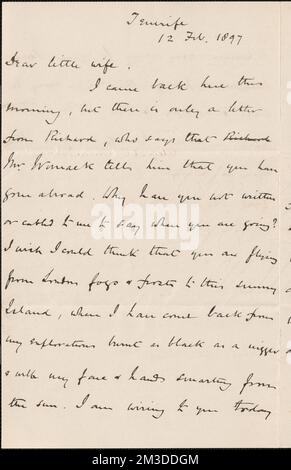 Tenerife
12 Feb. 1897
Dear little wife.
I came back here this
morning, but there is only a letter
from Richard, who says that Richard
Mr. Womack tells him that you have
gone abroad. Why have you not written
or cabled to me to say when you are going?
I wish I could think that you are flying
from London fogs & frosts to this sunny
Island, where I have come back from
my explorations burnt as black as a nigger
& with my face & hands smarting from
the sun. I am wiring to you today
alamy
Image ID: 2M3DDGM
www.alamy.com